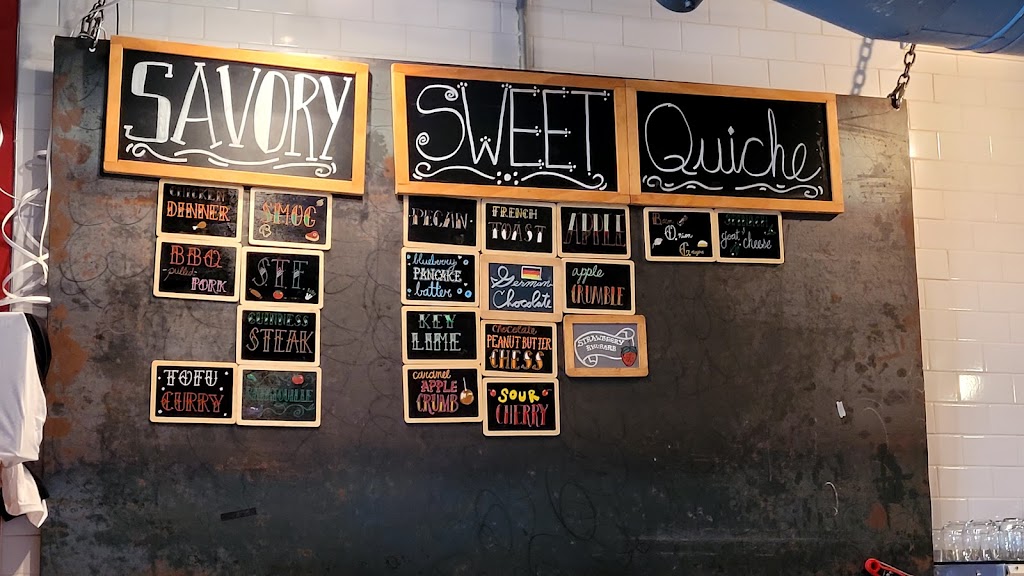 SAVORY
CHICKEN
DINNER
SMOG
BBQ
pulled
PORK
STF
GUINNESS
STEAK
TOFU
CURRY
SWEET
PECAN
FRENCH
TOAST
APPLE
blueberry
PANCAKE
batter
German
Chocolate
apple
CRUMBLE
KEY
LIME
chocolate
PEANUT BUTTER
CHESS
STRAWBERRY
RHUBARB
caramel
APPLE
CRUMB
SOUR
CHERRY
Quiche
Onion
goat cheese